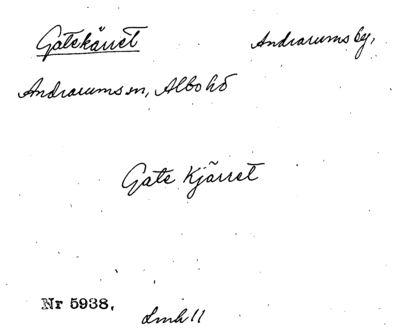 Gatekärret Andrarums by,
Andrarums sn, Albo hd
Gate Kjärret
Nr 5938,
Lmh 11